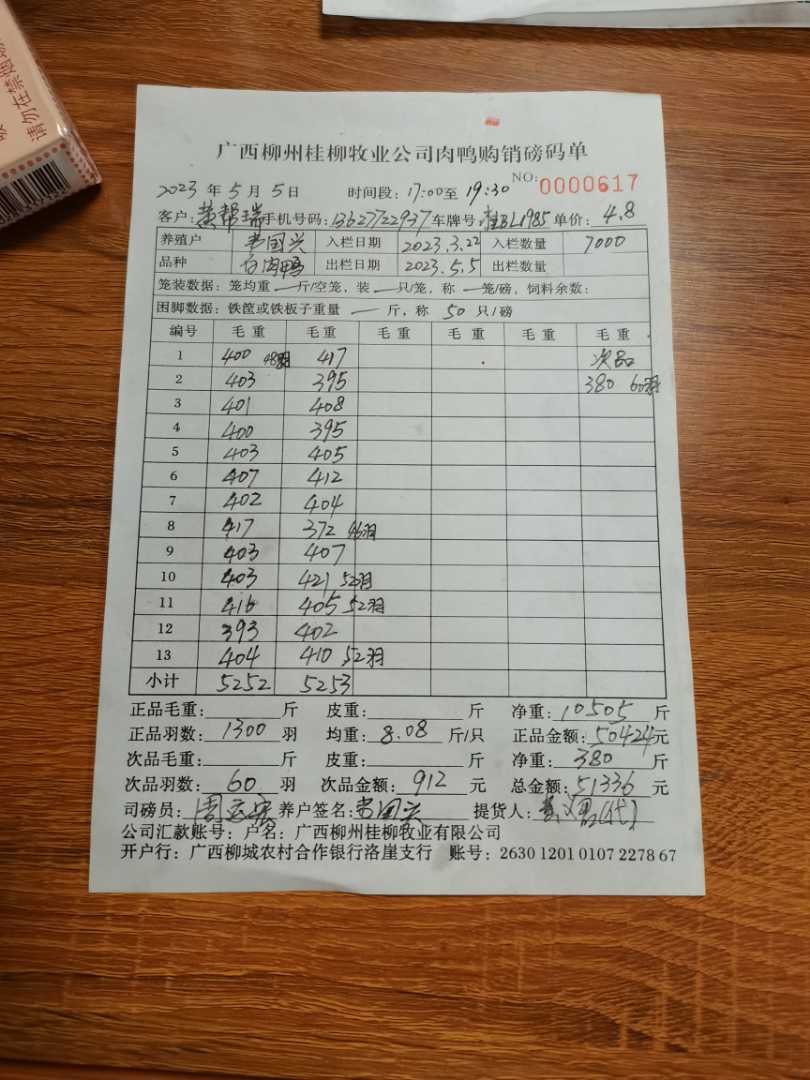 请勿在禁烟
广西柳州桂柳牧业公司肉鸭购销磅码单
NO: 0000617
2023 年 5 月 5 日 时间段: 17:00 至 19:30
客户: 黄帮瑞 手机号码: 13627722937 车牌号: 桂BL1985 单价: 4.8
养殖户 韦国兴 入栏日期 2023.3.22 入栏数量 7000
品种 白肉鸭 出栏日期 2023.5.5 出栏数量
笼装数据: 笼均重 — 斤/空笼, 装 — 只/笼, 称 — 笼/磅, 饲料余数:
困脚数据: 铁筐或铁板子重量 — 斤, 称 50 只/磅
编号 毛重 毛重 毛重 毛重 毛重 毛重
1 400 48羽 417 次品
2 403 395 380 60羽
3 401 408
4 400 395
5 403 405
6 407 412
7 402 404
8 417 372 46羽
9 403 407
10 403 421 52羽
11 416 405 52羽
12 393 402
13 404 410 52羽
小计 5252 5253
正品毛重: 斤 皮重: 斤 净重: 10505 斤
正品羽数: 1300 羽 均重: 8.08 斤/只 正品金额: 50424 元
次品毛重: 斤 皮重: 斤 净重: 380 斤
次品羽数: 60 羽 次品金额: 912 元 总金额: 51336 元
司磅员: 周 养户签名: 韦国兴 提货人: 黄 (代)
公司汇款账号: 户名: 广西柳州桂柳牧业有限公司
开户行: 广西柳城农村合作银行洛崖支行 账号: 2630 1201 0107 2278 67